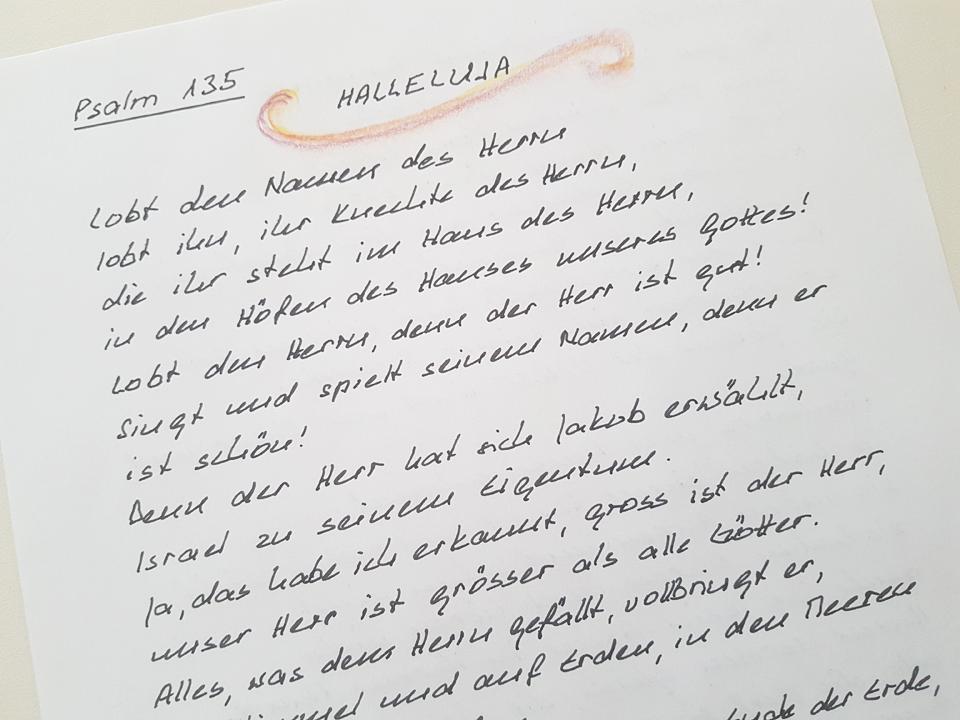 Psalm 135
HALLELUJA
Lobt den Namen des Herrn
lobt ihn, ihr Knechte des Herrn,
die ihr steht im Haus des Herrn,
in den Höfen des Hauses unseres Gottes!
Lobt den Herrn, denn der Herr ist gut!
Singt und spielt seinem Namen, denn er
ist schön!
Denn der Herr hat sich Jakob erwählt,
Israel zu seinem Eigentum.
Ja, das habe ich erkannt, gross ist der Herr,
unser Herr ist grösser als alle Götter.
Alles, was dem Herrn gefällt, vollbringt er,
und auf Erden, in den Meeren
der Erde,